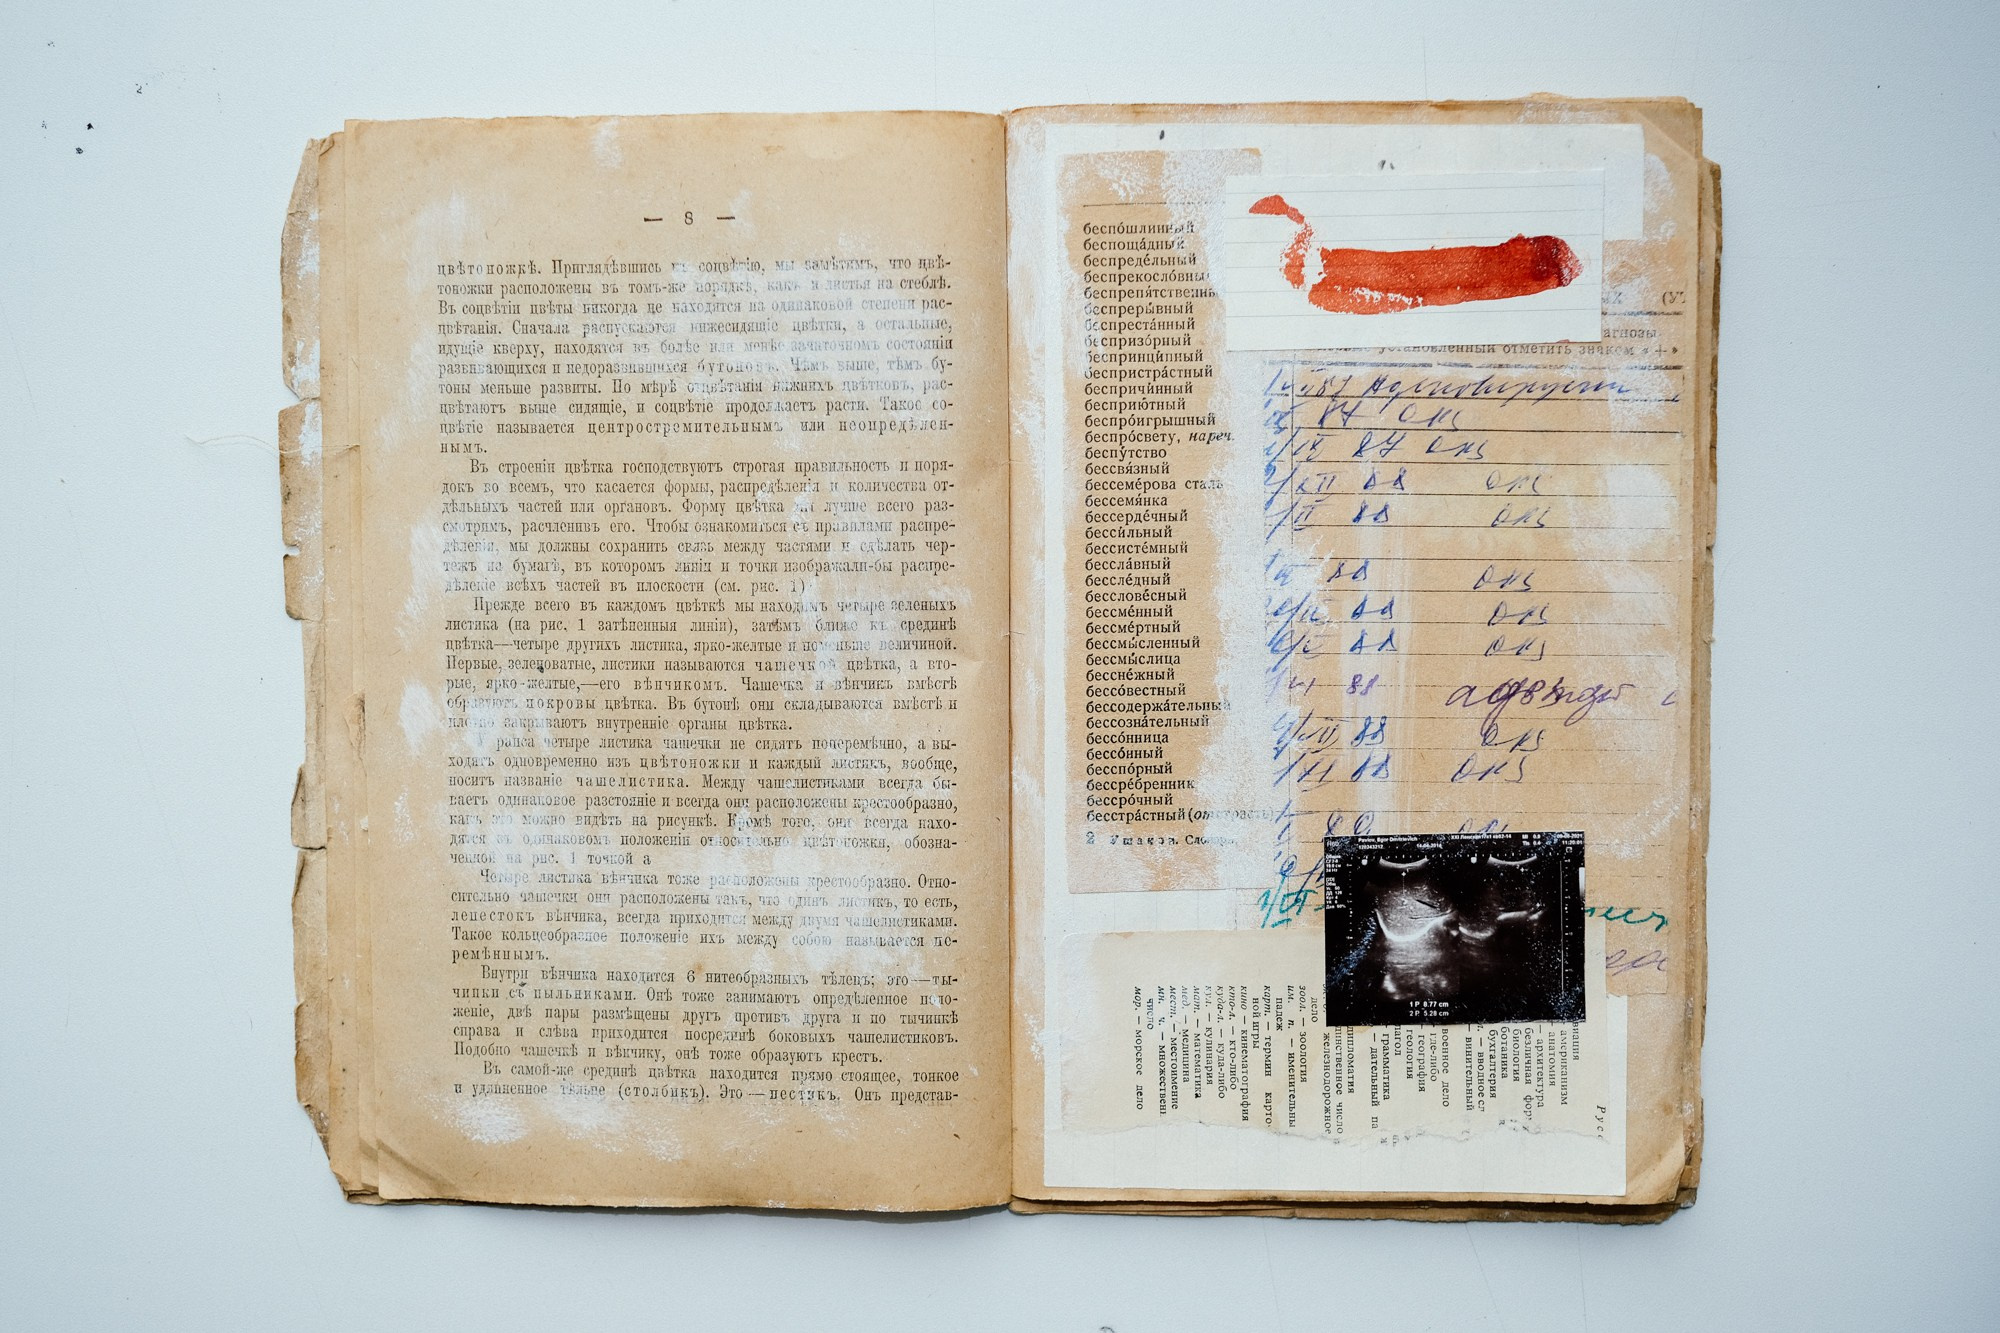 — 8 —
цвѣтоножкѣ. Приглядѣвшись къ соцвѣтію, мы замѣтимъ, что цвѣ-
тоножки расположены въ томъ-же порядкѣ, какъ и листья на стеблѣ.
Въ соцвѣтіи цвѣты никогда не находятся на одинаковой степени рас-
цвѣтанія. Сначала распускаются нижесидящіе цвѣтки, а остальные,
идущіе кверху, находятся въ болѣе или менѣе зачаточномъ состояніи
развивающихся и недоразвившихся бутоновъ. Чѣмъ выше, тѣмъ бу-
тоны меньше развиты. По мѣрѣ отцвѣтанія нижнихъ цвѣтковъ, рас-
цвѣтаютъ выше сидящіе, и соцвѣтіе продолжаетъ расти. Такое со-
цвѣтіе называется центростремительнымъ или неопредѣлен-
нымъ.
Въ строеніи цвѣтка господствуютъ строгая правильность и поря-
докъ во всемъ, что касается формы, распредѣленія и количества от-
дѣльныхъ частей или органовъ. Форму цвѣтка мы лучше всего раз-
смотримъ, расчленивъ его. Чтобы ознакомиться съ правилами распре-
дѣленія, мы должны сохранить связь между частями и сдѣлать чер-
тежъ на бумагѣ, въ которомъ линіи и точки изображали-бы распре-
дѣленіе всѣхъ частей въ плоскости (см. рис. 1)
Прежде всего въ каждомъ цвѣткѣ мы находимъ четыре зеленыхъ
листика (на рис. 1 затѣненныя линіи), затѣмъ ближе къ срединѣ
цвѣтка—четыре другихъ листика, ярко-желтые и поменьше величиной.
Первые, зеленоватые, листики называются чашечкой цвѣтка, а вто-
рые, ярко-желтые,—его вѣнчикомъ. Чашечка и вѣнчикъ вмѣстѣ
образуютъ покровы цвѣтка. Въ бутонѣ они складываются вмѣстѣ и
плотно закрываютъ внутренніе органы цвѣтка.
У рапса четыре листика чашечки не сидятъ поперемѣнно, а вы-
ходятъ одновременно изъ цвѣтоножки и каждый листикъ, вообще,
носитъ названіе чашелистика. Между чашелистиками всегда бы-
ваетъ одинаковое разстояніе и всегда они расположены крестообразно,
какъ это можно видѣть на рисункѣ. Кромѣ того, они всегда нахо-
дятся въ одинаковомъ положеніи относительно цвѣтоножки, обозна-
ченной на рис. 1 точкой а
Четыре листика вѣнчика тоже расположены крестообразно. Отно-
сительно чашечки они расположены такъ, что одинъ листикъ, то есть,
лепестокъ вѣнчика, всегда приходится между двумя чашелистиками.
Такое кольцеобразное положеніе ихъ между собою называется пе-
ремѣннымъ.
Внутри вѣнчика находится 6 нитеобразныхъ тѣлецъ; это — ты-
чинки съ пыльниками. Онѣ тоже занимаютъ опредѣленное поло-
женіе, двѣ пары размѣщены другъ противъ друга и по тычинкѣ
справа и слѣва приходится посрединѣ боковыхъ чашелистиковъ.
Подобно чашечкѣ и вѣнчику, онѣ тоже образуютъ крестъ.
Въ самой-же срединѣ цвѣтка находится прямо стоящее, тонкое
и удлиненное тѣльце (столбикъ). Это — пестикъ. Онъ представ-
беспо́шлинный
беспоща́дный
беспреде́льный
беспрекосло́вны
беспрепя́тственн
беспреры́вный
беспреста́нный
беспризо́рный
беспринци́пный
беспристра́стный
беспричи́нный
бесприю́тный
беспро́игрышный
беспро́свету, нареч.
беспу́тство
бессвя́зный
бессеме́рова сталь
бессемя́нка
бессерде́чный
бесси́льный
бессисте́мный
бессла́вный
бессле́дный
бессло́весный
бессме́нный
бессме́ртный
бессмы́сленный
бессмы́слица
бессне́жный
бессо́вестный
бессодержа́тельный
бессозна́тельный
бессо́нница
бессо́нный
бесспо́рный
бессре́бренник
бессро́чный
бесстра́стный (от страсть)
2 Ушаков. Словарь
(У
агнозы
установленный отметить знаком «+»
87
87 ОРЗ
IX 87 ОРЗ
XII 88 ОРЗ
II 88 ОРЗ
88 ОРЗ
88 ОРЗ
88 ОРЗ
88
VII 88 ОРЗ
XI 88 ОРЗ
1 P 8.77 cm
2 P 5.28 cm
Русс
виация
американизм
— анатомия
— архитектура
безличная фор
биология
ботаника
бухгалтерия
— вводное сл
винительный
военное дело
где-либо
— география
геология
лагол
грамматика
— дательный па
дипломатия
динственное число
железнодорожное
дело
зоол. — зоология
им. п. — именительны
падеж
карт. — термин карто-
ной игры
кино — кинематография
кто-л. — кто-либо
куда-л. — куда-либо
кул. — кулинария
мат. — математика
мед. — медицина
мест. — местоимение
мн. ч. — множествен
число
мор. — морское дело